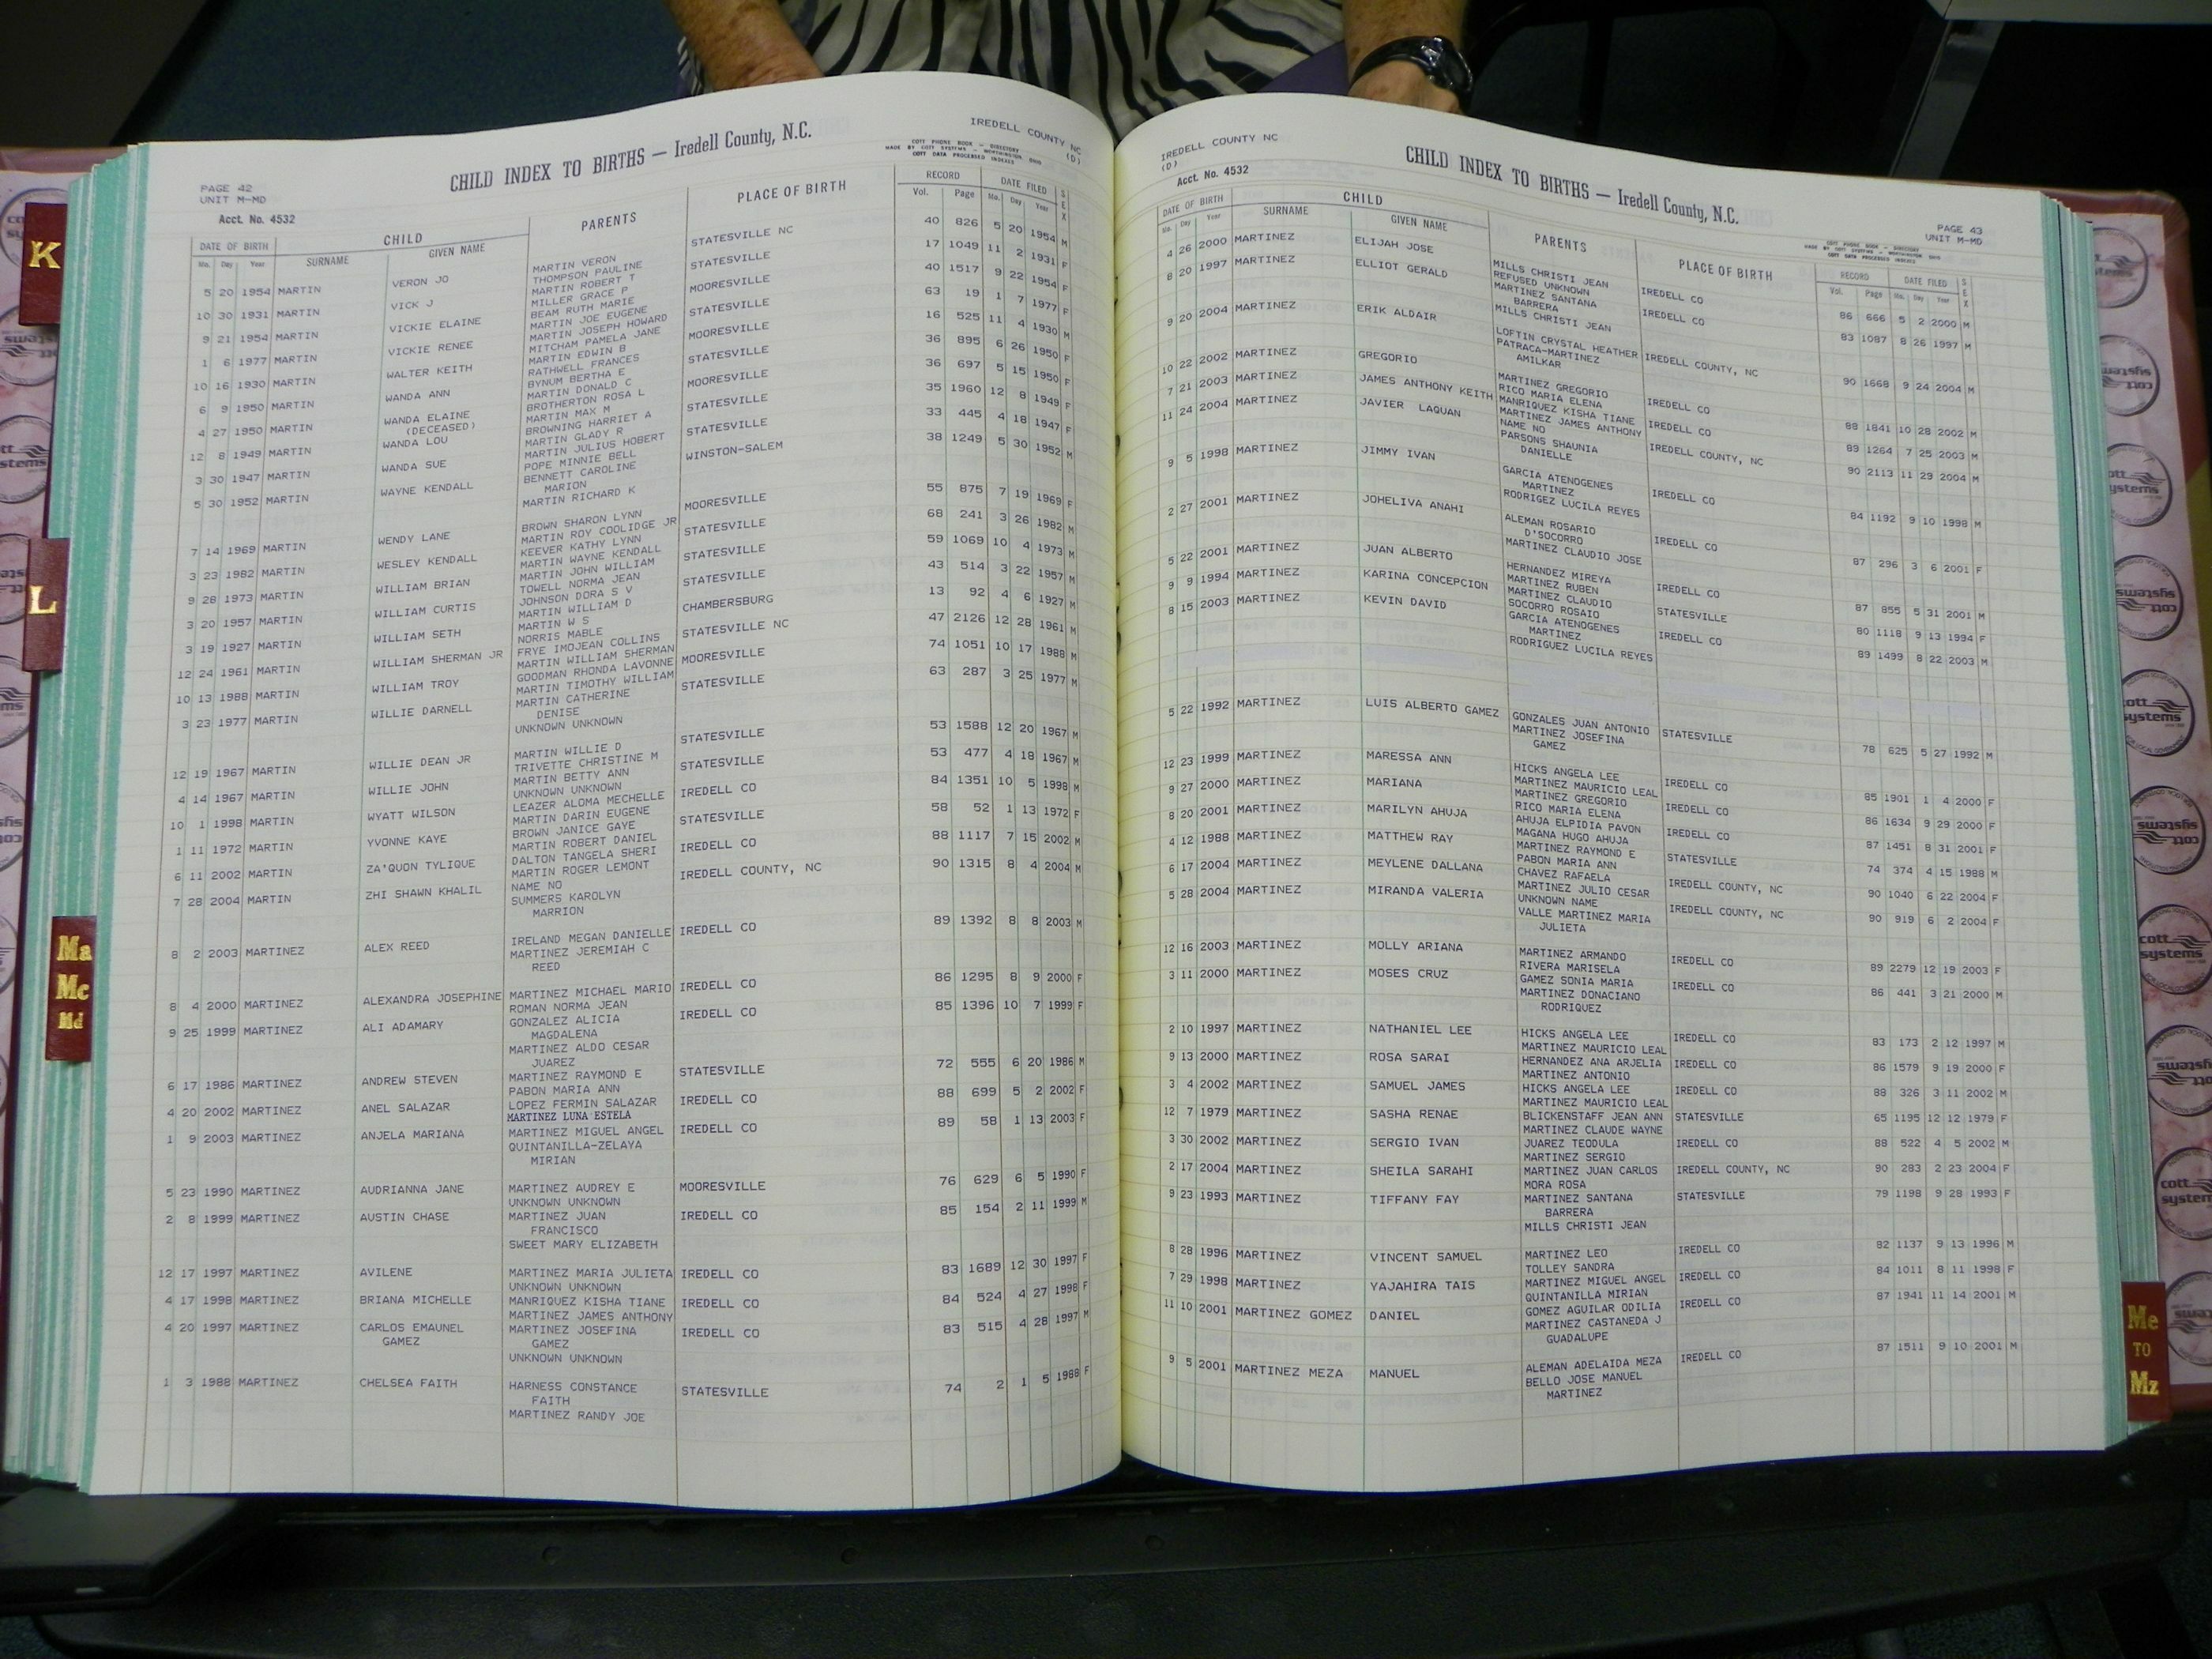 CHILD INDEX TO BIRTHS — Iredell County, N.C.
IREDELL COUNTY NC
(D)
COTT PHONE BOOK - DIRECTORY
MADE BY COTT SYSTEMS - WORTHINGTON, OHIO
COTT DATA PROCESSED INDEXES
PAGE 42
UNIT M-MD
Acct. No. 4532
DATE OF BIRTH CHILD PARENTS PLACE OF BIRTH RECORD DATE FILED SEX
Mo. Day Year SURNAME GIVEN NAME Vol. Page Mo. Day Year
5 20 1954 MARTIN VERON JO MARTIN VERON STATESVILLE NC 40 826 5 20 1954 M
THOMPSON PAULINE
10 30 1931 MARTIN VICK J MARTIN ROBERT T STATESVILLE 17 1049 11 2 1931 F
MILLER GRACE P
9 21 1954 MARTIN VICKIE ELAINE BEAM RUTH MARIE MOORESVILLE 40 1517 9 22 1954 F
MARTIN JOE EUGENE
1 6 1977 MARTIN VICKIE RENEE MARTIN JOSEPH HOWARD STATESVILLE 63 19 1 7 1977 F
MITCHAM PAMELA JANE
10 16 1930 MARTIN WALTER KEITH MARTIN EDWIN B MOORESVILLE 16 525 11 4 1930 M
RATHWELL FRANCES
6 9 1950 MARTIN WANDA ANN BYNUM BERTHA E STATESVILLE 36 895 6 26 1950 F
MARTIN DONALD C
4 27 1950 MARTIN WANDA ELAINE BROTHERTON ROSA L MOORESVILLE 36 697 5 15 1950 F
(DECEASED) MARTIN MAX M
12 8 1949 MARTIN WANDA LOU BROWNING HARRIET A STATESVILLE 35 1960 12 8 1949 F
MARTIN GLADY R
3 30 1947 MARTIN WANDA SUE MARTIN JULIUS HOBERT STATESVILLE 33 445 4 18 1947 F
POPE MINNIE BELL
5 30 1952 MARTIN WAYNE KENDALL BENNETT CAROLINE WINSTON-SALEM 38 1249 5 30 1952 M
MARION
MARTIN RICHARD K
7 14 1969 MARTIN WENDY LANE BROWN SHARON LYNN MOORESVILLE 55 875 7 19 1969 F
MARTIN ROY COOLIDGE JR
3 23 1982 MARTIN WESLEY KENDALL KEEVER KATHY LYNN STATESVILLE 68 241 3 26 1982 M
MARTIN WAYNE KENDALL
9 28 1973 MARTIN WILLIAM BRIAN MARTIN JOHN WILLIAM STATESVILLE 59 1069 10 4 1973 M
TOWELL NORMA JEAN
3 20 1957 MARTIN WILLIAM CURTIS JOHNSON DORA S V STATESVILLE 43 514 3 22 1957 M
MARTIN WILLIAM D
3 19 1927 MARTIN WILLIAM SETH MARTIN W S CHAMBERSBURG 13 92 4 6 1927 M
NORRIS MABLE
12 24 1961 MARTIN WILLIAM SHERMAN JR FRYE IMOJEAN COLLINS STATESVILLE NC 47 2126 12 28 1961 M
MARTIN WILLIAM SHERMAN
10 13 1988 MARTIN WILLIAM TROY GOODMAN RHONDA LAVONNE MOORESVILLE 74 1051 10 17 1988 M
MARTIN TIMOTHY WILLIAM
3 23 1977 MARTIN WILLIE DARNELL MARTIN CATHERINE STATESVILLE 63 287 3 25 1977 M
DENISE
UNKNOWN UNKNOWN
12 19 1967 MARTIN WILLIE DEAN JR MARTIN WILLIE D STATESVILLE 53 1588 12 20 1967 M
TRIVETTE CHRISTINE M
4 14 1967 MARTIN WILLIE JOHN MARTIN BETTY ANN STATESVILLE 53 477 4 18 1967 M
UNKNOWN UNKNOWN
10 1 1998 MARTIN WYATT WILSON LEAZER ALOMA MECHELLE IREDELL CO 84 1351 10 5 1998 M
MARTIN DARIN EUGENE
1 11 1972 MARTIN YVONNE KAYE BROWN JANICE GAYE STATESVILLE 58 52 1 13 1972 F
MARTIN ROBERT DANIEL
6 11 2002 MARTIN ZA'QUON TYLIQUE DALTON TANGELA SHERI IREDELL CO 88 1117 7 15 2002 M
MARTIN ROGER LEMONT
7 28 2004 MARTIN ZHI SHAWN KHALIL NAME NO IREDELL COUNTY, NC 90 1315 8 4 2004 M
SUMMERS KAROLYN
MARRION
8 2 2003 MARTINEZ ALEX REED IRELAND MEGAN DANIELLE IREDELL CO 89 1392 8 8 2003 M
MARTINEZ JEREMIAH C
REED
8 4 2000 MARTINEZ ALEXANDRA JOSEPHINE MARTINEZ MICHAEL MARIO IREDELL CO 86 1295 8 9 2000 F
ROMAN NORMA JEAN
9 25 1999 MARTINEZ ALI ADAMARY GONZALEZ ALICIA IREDELL CO 85 1396 10 7 1999 F
MAGDALENA
MARTINEZ ALDO CESAR
JUAREZ
6 17 1986 MARTINEZ ANDREW STEVEN MARTINEZ RAYMOND E STATESVILLE 72 555 6 20 1986 M
PABON MARIA ANN
4 20 2002 MARTINEZ ANEL SALAZAR LOPEZ FERMIN SALAZAR IREDELL CO 88 699 5 2 2002 F
MARTINEZ LUNA ESTELA
1 9 2003 MARTINEZ ANJELA MARIANA MARTINEZ MIGUEL ANGEL IREDELL CO 89 58 1 13 2003 F
QUINTANILLA-ZELAYA
MIRIAN
5 23 1990 MARTINEZ AUDRIANNA JANE MARTINEZ AUDREY E MOORESVILLE 76 629 6 5 1990 F
UNKNOWN UNKNOWN
2 8 1999 MARTINEZ AUSTIN CHASE MARTINEZ JUAN IREDELL CO 85 154 2 11 1999 M
FRANCISCO
SWEET MARY ELIZABETH
12 17 1997 MARTINEZ AVILENE MARTINEZ MARIA JULIETA IREDELL CO 83 1689 12 30 1997 F
UNKNOWN UNKNOWN
4 17 1998 MARTINEZ BRIANA MICHELLE MANRIQUEZ KISHA TIANE IREDELL CO 84 524 4 27 1998 F
MARTINEZ JAMES ANTHONY
4 20 1997 MARTINEZ CARLOS EMAUNEL MARTINEZ JOSEFINA IREDELL CO 83 515 4 28 1997 M
GAMEZ GAMEZ
UNKNOWN UNKNOWN
1 3 1988 MARTINEZ CHELSEA FAITH HARNESS CONSTANCE STATESVILLE 74 2 1 5 1988 F
FAITH
MARTINEZ RANDY JOE
IREDELL COUNTY NC
(D)
CHILD INDEX TO BIRTHS — Iredell County, N.C.
Acct. No. 4532
PAGE 43
UNIT M-MD
COTT PHONE BOOK - DIRECTORY
MADE BY COTT SYSTEMS - WORTHINGTON, OHIO
COTT DATA PROCESSED INDEXES
DATE OF BIRTH CHILD PARENTS PLACE OF BIRTH RECORD DATE FILED SEX
Mo. Day Year SURNAME GIVEN NAME Vol. Page Mo. Day Year
4 26 2000 MARTINEZ ELIJAH JOSE MILLS CHRISTI JEAN IREDELL CO 86 666 5 2 2000 M
REFUSED UNKNOWN
8 20 1997 MARTINEZ ELLIOT GERALD MARTINEZ SANTANA IREDELL CO 83 1087 8 26 1997 M
BARRERA
MILLS CHRISTI JEAN
9 20 2004 MARTINEZ ERIK ALDAIR LOFTIN CRYSTAL HEATHER IREDELL COUNTY, NC 90 1668 9 24 2004 M
PATRACA-MARTINEZ
AMILKAR
10 22 2002 MARTINEZ GREGORIO MARTINEZ GREGORIO IREDELL CO 88 1841 10 28 2002 M
RICO MARIA ELENA
7 21 2003 MARTINEZ JAMES ANTHONY KEITH MANRIQUEZ KISHA TIANE IREDELL CO 89 1264 7 25 2003 M
MARTINEZ JAMES ANTHONY
11 24 2004 MARTINEZ JAVIER LAQUAN NAME NO IREDELL COUNTY, NC 90 2113 11 29 2004 M
PARSONS SHAUNIA
DANIELLE
9 5 1998 MARTINEZ JIMMY IVAN GARCIA ATENOGENES IREDELL CO 84 1192 9 10 1998 M
MARTINEZ
RODRIGEZ LUCILA REYES
2 27 2001 MARTINEZ JOHELIVA ANAHI ALEMAN ROSARIO IREDELL CO 87 296 3 6 2001 F
D'SOCORRO
MARTINEZ CLAUDIO JOSE
5 22 2001 MARTINEZ JUAN ALBERTO HERNANDEZ MIREYA IREDELL CO 87 855 5 31 2001 M
MARTINEZ RUBEN
9 9 1994 MARTINEZ KARINA CONCEPCION MARTINEZ CLAUDIO STATESVILLE 80 1118 9 13 1994 F
SOCORRO ROSAIO
8 15 2003 MARTINEZ KEVIN DAVID GARCIA ATENOGENES IREDELL CO 89 1499 8 22 2003 M
MARTINEZ
RODRIGUEZ LUCILA REYES
5 22 1992 MARTINEZ LUIS ALBERTO GAMEZ GONZALES JUAN ANTONIO STATESVILLE 78 625 5 27 1992 M
MARTINEZ JOSEFINA
GAMEZ
12 23 1999 MARTINEZ MARESSA ANN HICKS ANGELA LEE IREDELL CO 85 1901 1 4 2000 F
MARTINEZ MAURICIO LEAL
9 27 2000 MARTINEZ MARIANA MARTINEZ GREGORIO IREDELL CO 86 1634 9 29 2000 F
RICO MARIA ELENA
8 20 2001 MARTINEZ MARILYN AHUJA AHUJA ELPIDIA PAVON IREDELL CO 87 1451 8 31 2001 F
MAGANA HUGO AHUJA
4 12 1988 MARTINEZ MATTHEW RAY MARTINEZ RAYMOND E STATESVILLE 74 374 4 15 1988 M
PABON MARIA ANN
6 17 2004 MARTINEZ MEYLENE DALLANA CHAVEZ RAFAELA IREDELL COUNTY, NC 90 1040 6 22 2004 F
MARTINEZ JULIO CESAR
5 28 2004 MARTINEZ MIRANDA VALERIA UNKNOWN NAME IREDELL COUNTY, NC 90 919 6 2 2004 F
VALLE MARTINEZ MARIA
JULIETA
12 16 2003 MARTINEZ MOLLY ARIANA MARTINEZ ARMANDO IREDELL CO 89 2279 12 19 2003 F
RIVERA MARISELA
3 11 2000 MARTINEZ MOSES CRUZ GAMEZ SONIA MARIA IREDELL CO 86 441 3 21 2000 M
MARTINEZ DONACIANO
RODRIQUEZ
2 10 1997 MARTINEZ NATHANIEL LEE HICKS ANGELA LEE IREDELL CO 83 173 2 12 1997 M
MARTINEZ MAURICIO LEAL
9 13 2000 MARTINEZ ROSA SARAI HERNANDEZ ANA ARJELIA IREDELL CO 86 1579 9 19 2000 F
MARTINEZ ANTONIO
3 4 2002 MARTINEZ SAMUEL JAMES HICKS ANGELA LEE IREDELL CO 88 326 3 11 2002 M
MARTINEZ MAURICIO LEAL
12 7 1979 MARTINEZ SASHA RENAE BLICKENSTAFF JEAN ANN STATESVILLE 65 1195 12 12 1979 F
MARTINEZ CLAUDE WAYNE
3 30 2002 MARTINEZ SERGIO IVAN JUAREZ TEODULA IREDELL CO 88 522 4 5 2002 M
MARTINEZ SERGIO
2 17 2004 MARTINEZ SHEILA SARAHI MARTINEZ JUAN CARLOS IREDELL COUNTY, NC 90 283 2 23 2004 F
MORA ROSA
9 23 1993 MARTINEZ TIFFANY FAY MARTINEZ SANTANA STATESVILLE 79 1198 9 28 1993 F
BARRERA
MILLS CHRISTI JEAN
8 28 1996 MARTINEZ VINCENT SAMUEL MARTINEZ LEO IREDELL CO 82 1137 9 13 1996 M
TOLLEY SANDRA
7 29 1998 MARTINEZ YAJAHIRA TAIS MARTINEZ MIGUEL ANGEL IREDELL CO 84 1011 8 11 1998 F
QUINTANILLA MIRIAN
11 10 2001 MARTINEZ GOMEZ DANIEL GOMEZ AGUILAR ODILIA IREDELL CO 87 1941 11 14 2001 M
MARTINEZ CASTANEDA J
GUADALUPE
9 5 2001 MARTINEZ MEZA MANUEL ALEMAN ADELAIDA MEZA IREDELL CO 87 1511 9 10 2001 M
BELLO JOSE MANUEL
MARTINEZ
K
L
Ma
Mc
Md
Me
TO
Mz
cott
systems